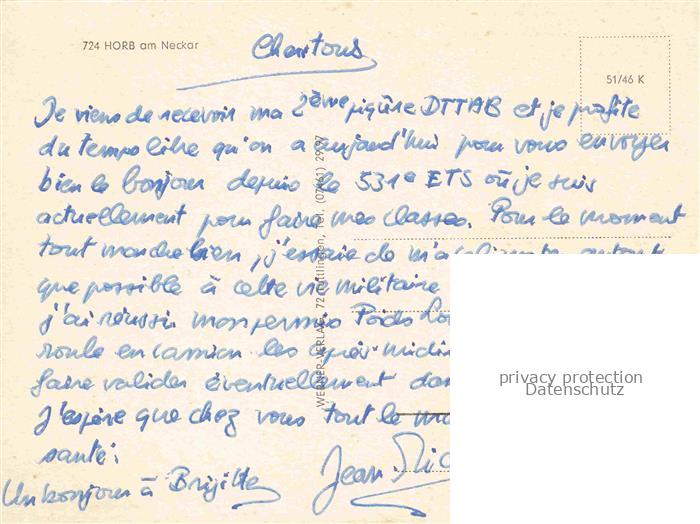 724 HORB am Neckar
Chartous
51/46 K
Je viens de recevoir ma 2ème piqûre DTTAB et je profite
du temps libre qu'on a aujourd'hui pour vous envoyer
bien le bonjour depuis le 531e ETS où je suis
actuellement pour faire mes classes. Pour le moment
tout marche bien, j'essaie de m'acclimater autant
que possible à cette vie militaire
j'ai réussi mon permis Poids Lo
roule en camion les après-midi
faire valider éventuellement da
J'espère que chez vous tout le mo
santé.
Un bonjour à Brigitte
Jean Mic
WERNER-VERLAG, 72 Tuttlingen, Tel. (07461) 2997
privacy protection
Datenschutz